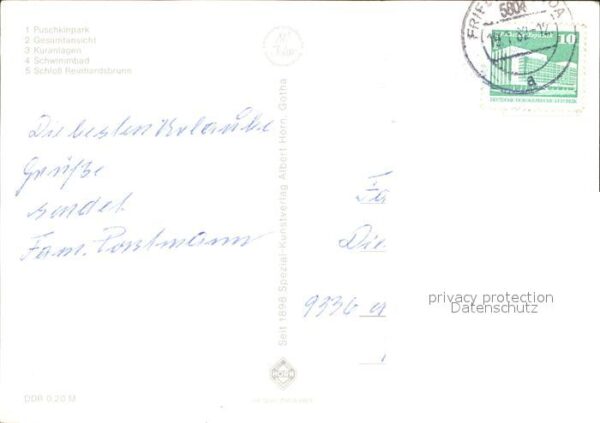 1 Puschkinpark
2 Gesamtansicht
3 Kuranlagen
4 Schwimmbad
5 Schloß Reinhardsbrunn
Die besten Urlaube
Grüße
sendet
Fam. Porstmann
DDR 0,20 M
Seit 1896 Spezial-Kunstverlag Albert Horn, Gotha
5804
a
10
DEUTSCHE DEMOKRATISCHE REPUBLIK
Fa
Die
9336
privacy protection
Datenschutz